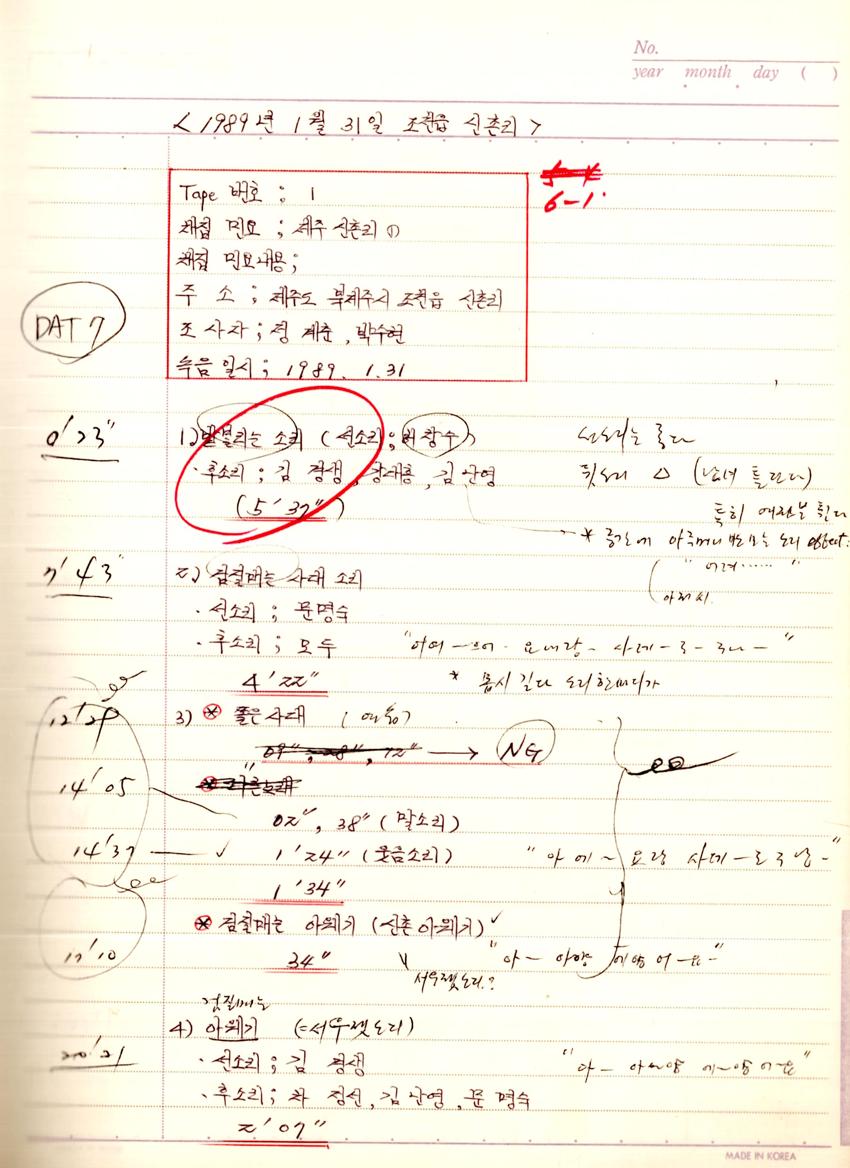 No.
year month day ( )
< 1989년 1월 31일 조천읍 신촌리 >
Tape 번호 ; 1
6-1
채집 민요 ; 제주 신촌리의
채집 민요내용;
주 소 ; 제주도 북제주시 조천읍 신촌리
DAT 7
조 사 자 ; 정 제준 , 박수현
녹음 일시 ; 1989. 1. 31
0'23" 1) 밭볼리는 소리 ( 선소리 ; 허 창수 ) 선소리는 좋다
· 후소리 ; 김 평생 , 강대흥 , 김 난영 뒷소리 △ (남녀 틀린다)
( 5'37" ) 특히 여자분 틀린다
* 중간에 아주머니 소 모는 소리 effect.
7'43" 2) 검질매는 사대 소리 " 어려 ...... "
아저씨.
· 선소리 ; 문명숙
· 후소리 ; 모두 "어여 요내랑 사데
4'22" * 몹시 길다 소리 한마디가
12'29 3) 쫄은사대 (여창)
09", 28", 12" → NG
14'05
02", 38" ( 말소리 )
14'37 1'24" ( 웃음소리 ) " 아 에 ~ 요랑 사데
1'34"
검질매는 아웨기 (신촌 아웨기)
17'10 34" "아 - 아양 에양 어 - 요-"
서우젯소리?
검질매는
4) 아웨기 (=서우젯소리)
20'21 · 선소리 ; 김 평생
· 후소리 ; 차 정선 , 김 난영 , 문 명숙
2'07"
MADE IN KOREA